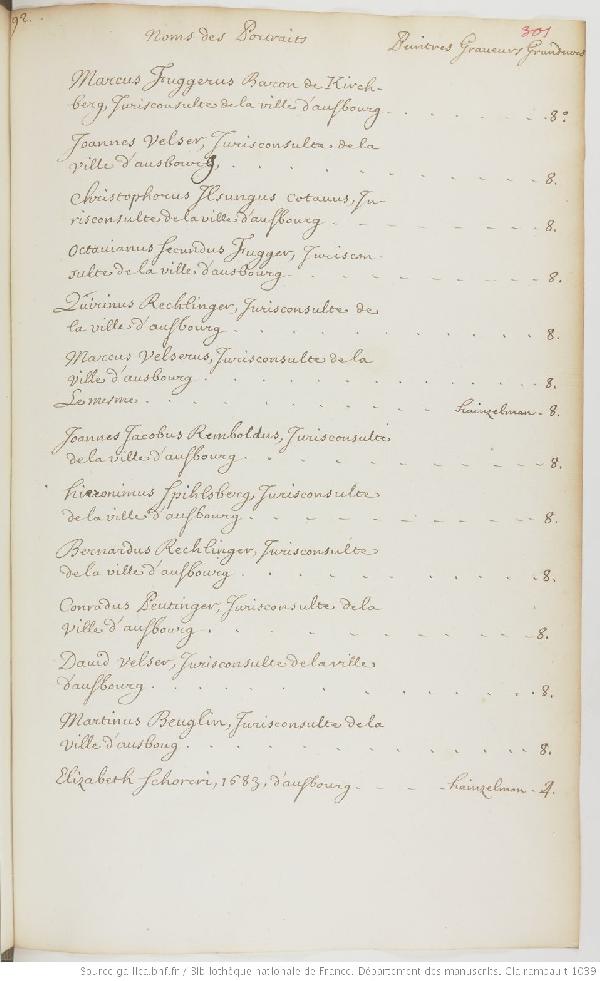 92.
301
Noms des Portraits Peintres Graveurs Grandeurs
Marcus Fuggerus Baron de Kirch-
berg, Jurisconsulte de la ville d'ausbourg . . . . . . 8°
Joannes Velser, Jurisconsulte de la
ville d'ausbourg, . . . . . . 8.
Christophorus Ilsungus cotauus, Ju-
risconsulte de la ville d'ausbourg . . . . . . 8.
Octauianus secundus Fugger, Juriscon-
sulte de la ville d'ausbourg . . . . . . 8.
Quirinus Rechlinger, Jurisconsulte de
la ville d'ausbourg . . . . . . 8.
Marcus Velserus, Jurisconsulte de la
ville d'ausbourg . . . . . . 8.
Le mesme . . . . . . hainzelman - 8.
Joannes Jacobus Remboldus, Jurisconsulte
de la ville d'ausbourg . . . . . . 8.
hieronimus Spihlsberg, Jurisconsulte
de la ville d'ausbourg . . . . . . 8.
Bernardus Rechlinger, Jurisconsulte
de la ville d'ausbourg . . . . . . 8.
Conradus Peutinger, Jurisconsulte de la
ville d'ausbourg . . . . . . 8.
Dauid velser, Jurisconsulte de la ville
d'ausbourg . . . . . . 8.
Martinus Beuglin, Jurisconsulte de la
ville d'ausboug . . . . . . 8.
Elizabeth Schoreri, 1683, d'ausbourg - - - hainzelman - 4.
Source gallica.bnf.fr / Bibliothèque nationale de France. Département des manuscrits. Clairambault 1039